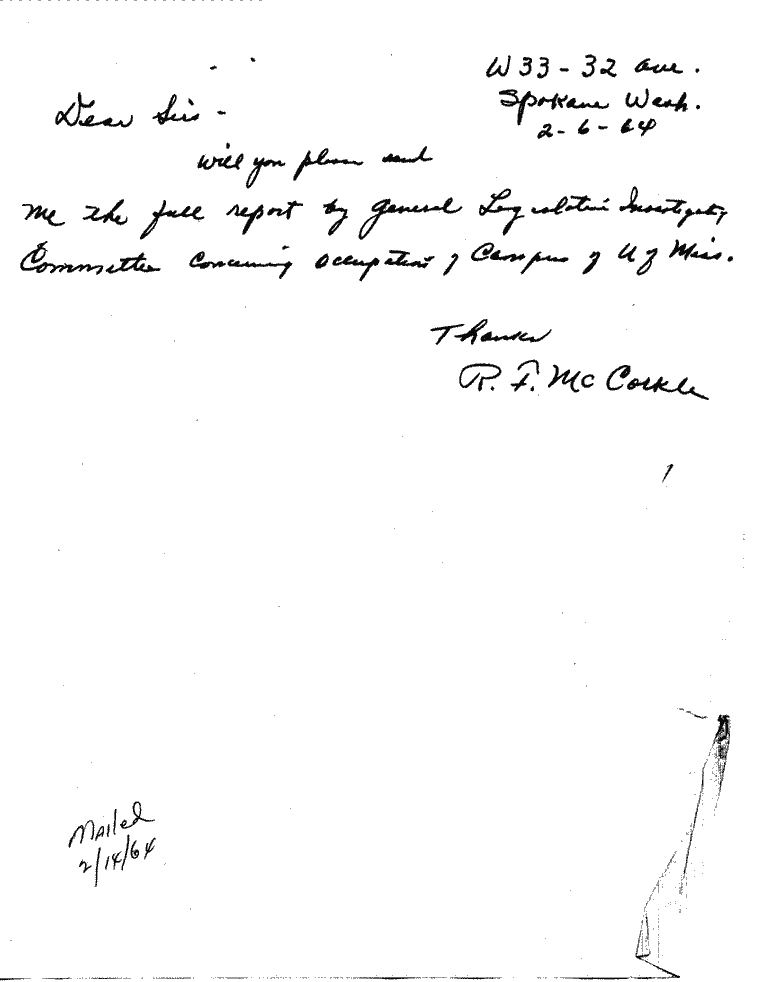 W 33 - 32 Ave.
Spokane Wash.
2-6-64
Dear Sirs -
Will you please send
me the full report by General Legislative Investigating
Committee concerning occupation of Campus of U of Miss.
Thanks
R. F. McCorkle
Mailed
2/14/64